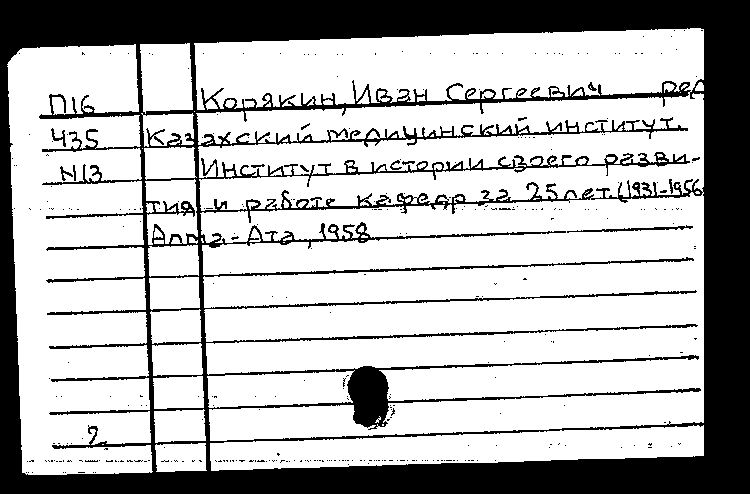 П16 Корякин, Иван Сергеевич ред
Ч35 Казахский медицинский институт.
N13 Институт в истории своего разви-
тия и работе кафедр за 25 лет. (1931-1956
Алма-Ата, 1958
2